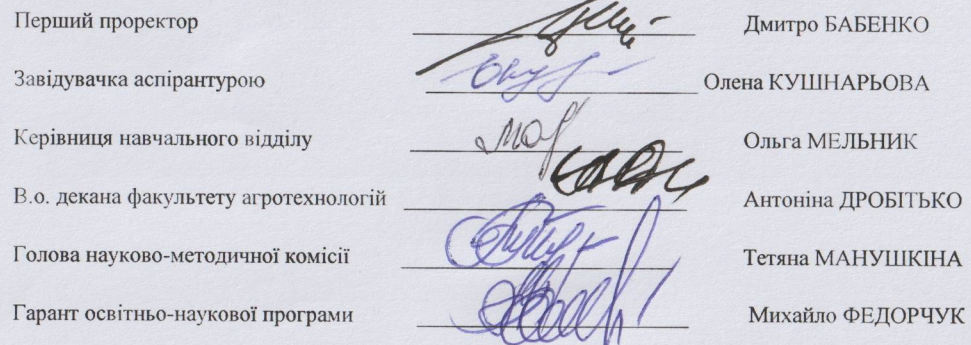 Перший проректор Дмитро БАБЕНКО
Завідувачка аспірантурою Олена КУШНАРЬОВА
Керівниця навчального відділу Ольга МЕЛЬНИК
В.о. декана факультету агротехнологій Антоніна ДРОБІТЬКО
Голова науково-методичної комісії Тетяна МАНУШКІНА
Гарант освітньо-наукової програми Михайло ФЕДОРЧУК